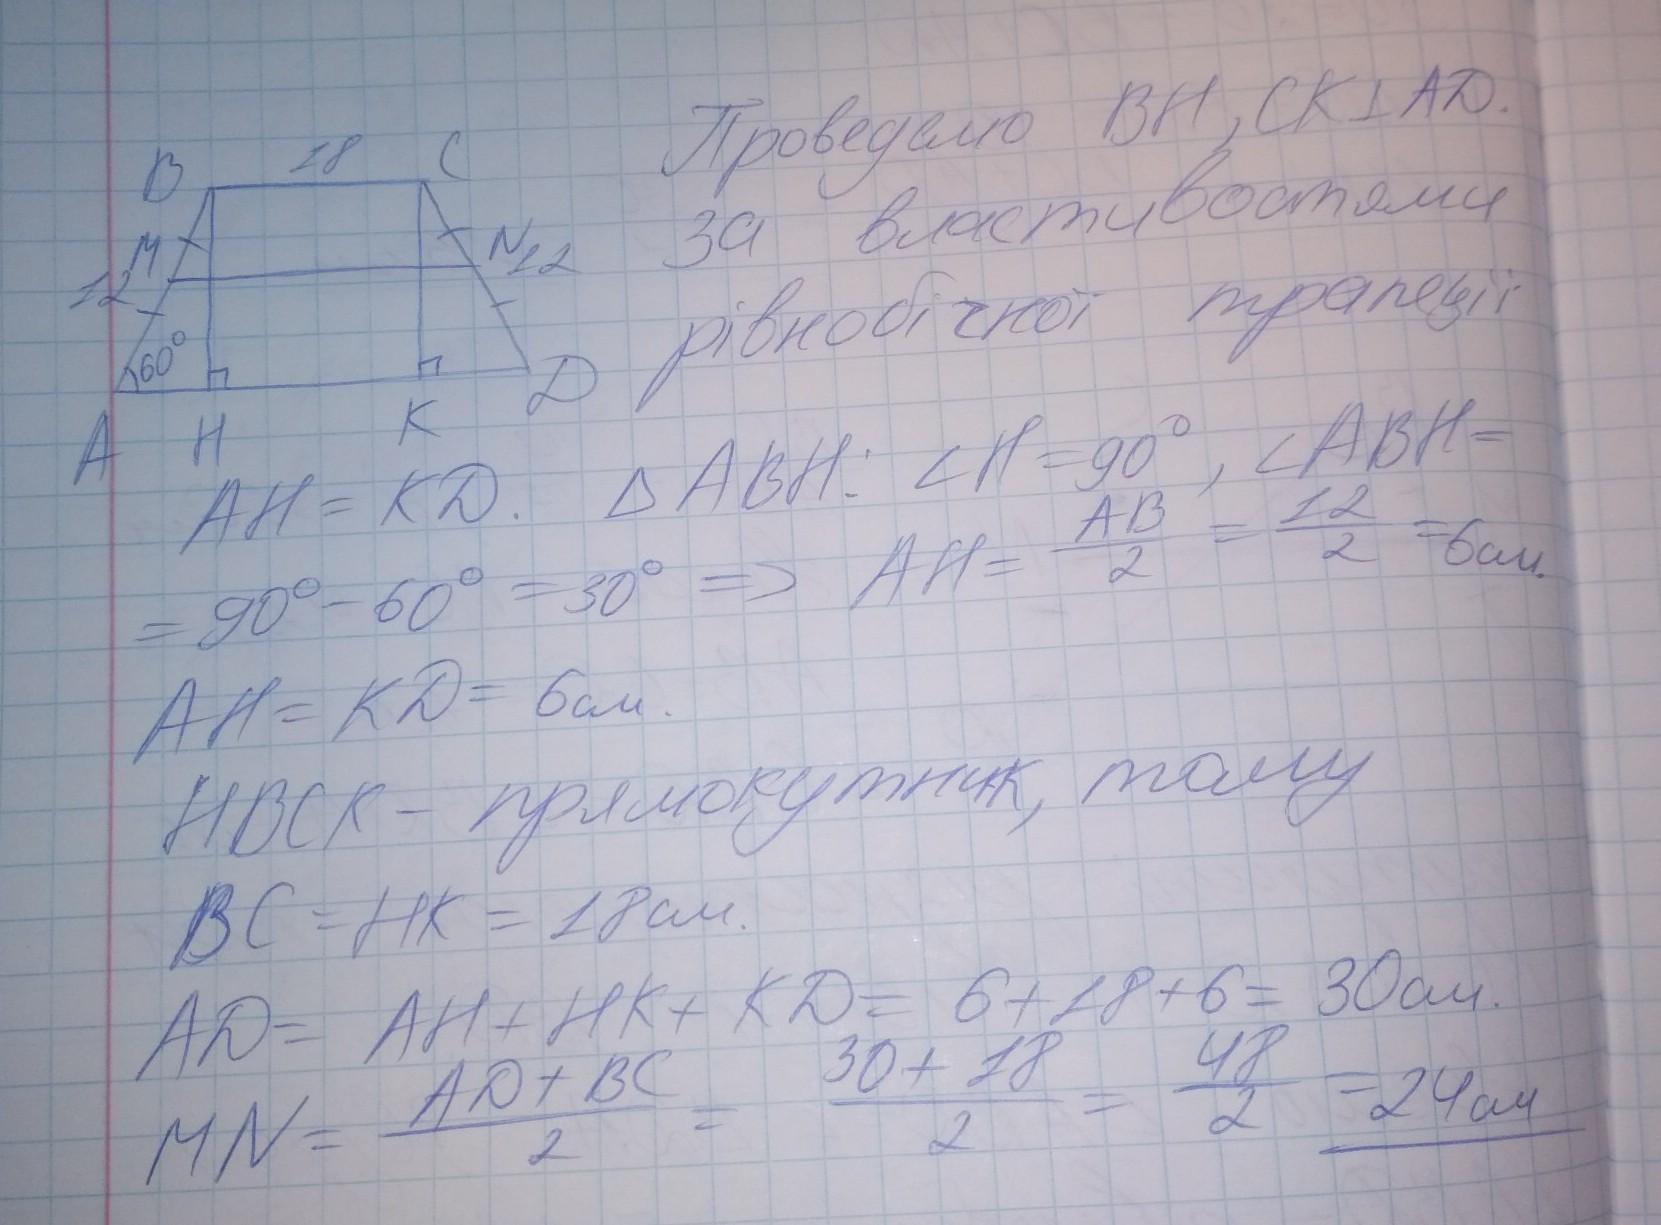 Проведемо BH, CK⊥AD.
B 18 C
За властивостями
M N 12
12
рівнобічної трапеції
60°
A H K D
AH = KD. △ABH: ∠H=90°, ∠ABH=
=90°-60°=30° => AH= AB/2 = 12/2 =6см.
AH= KD= 6см.
HBCK- прямокутник, тому
BC=HK= 18см.
AD= AH+HK+KD= 6+18+6= 30см.
MN= AD+BC/2 = 30+18/2 = 48/2 =24см